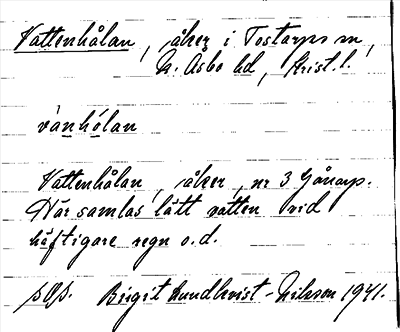 Vattenhålan, åker i Tostarps sn,
N. Åsbo hd, Krist. l.
vánhólan
Vattenhålan, åker, nr 3 Gånarp.
När samlas lätt vatten vid
häftigare regn o.d.
Birgit Lundkvist-Nilsson 1941.